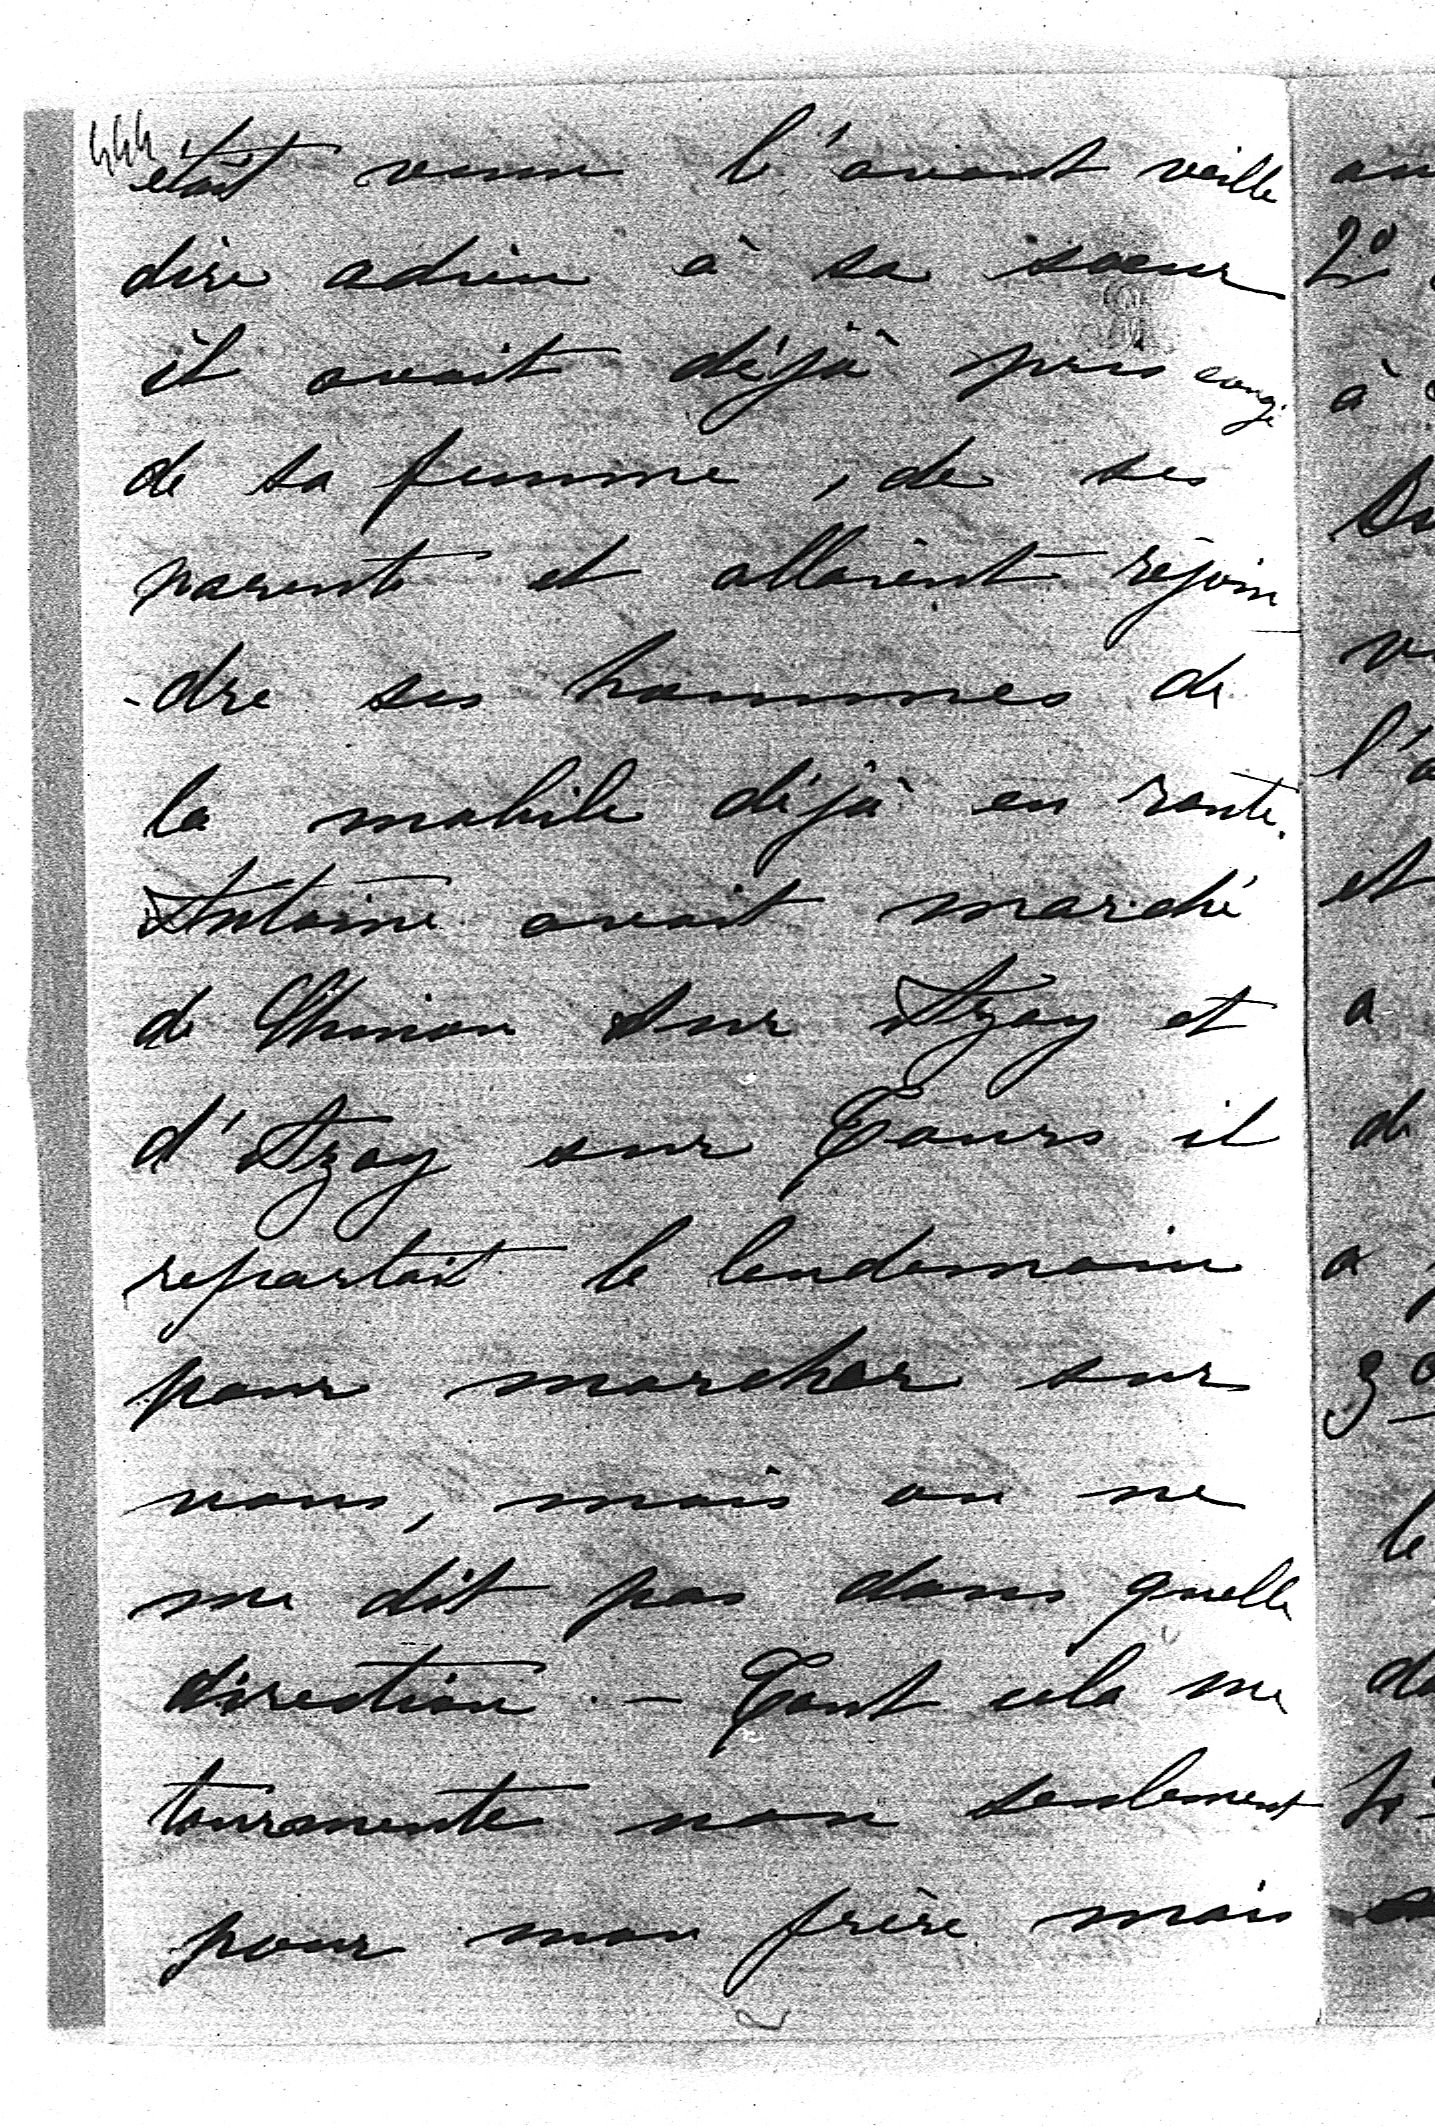 444
était venu l'avant veille
dire adieu à sa soeur
il avait déjà pris congé
de sa femme, de ses
parents et allaient rejoin
-dre ses hommes de
la mobile déjà en route.
Antoine avait marché
de Chinon sur Azay et
d'Azay sur Tours il
repartait le lendemain
pour marcher sur
nous, mais on ne
me dit pas dans quelle
direction. - Tout cela me
tourmente non seulement
pour mon frère mais